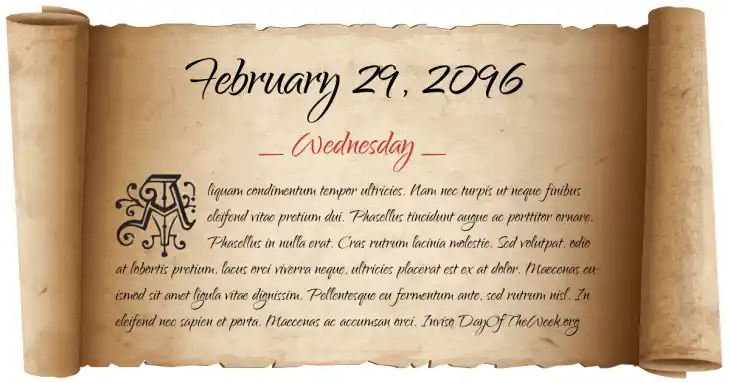 February 29, 2096
Wednesday
Aliquam condimentum tempor ultricies. Nam nec turpis ut neque finibus
eleifend vitae pretium dui. Phasellus tincidunt augue ac porttitor ornare.
Phasellus in nulla erat. Cras rutrum lacinia molestie. Sed volutpat, odio
at lobortis pretium, lacus orci viverra neque, ultricies placerat est ex at dolor. Maecenas eu-
ismod sit amet ligula vitae dignissim. Pellentesque eu fermentum ante, sed rutrum nisl. In
eleifend nec sapien et porta. Maecenas ac accumsan orci. Invisq DayOfTheWeek.org